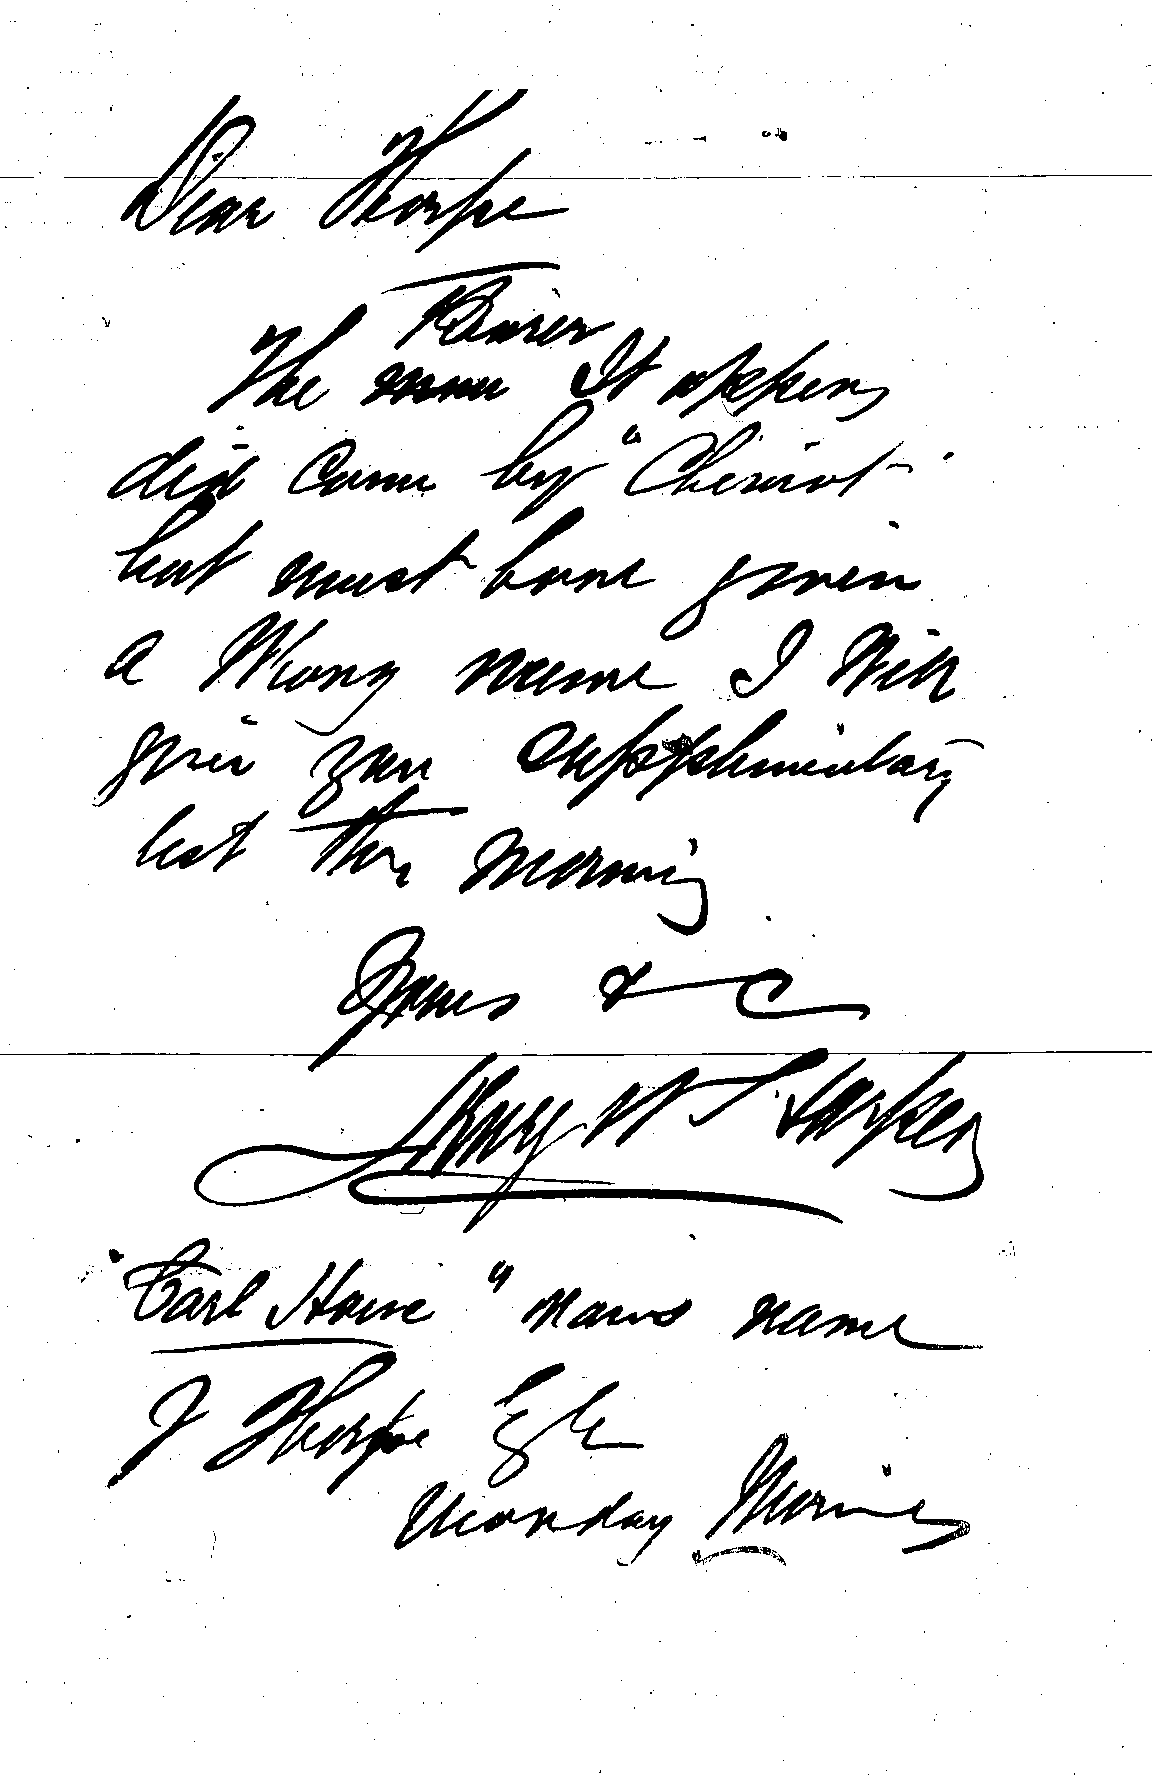 Dear Thorpe
Bearer
The man It appears
did come by "Cheviot"
but must have given
a Wrong name I Will
give you Supplementary
list this Morning
Yours & C
W J Harper
"Carl Howe" mans name
J Thorpe Esqre
Monday Morning